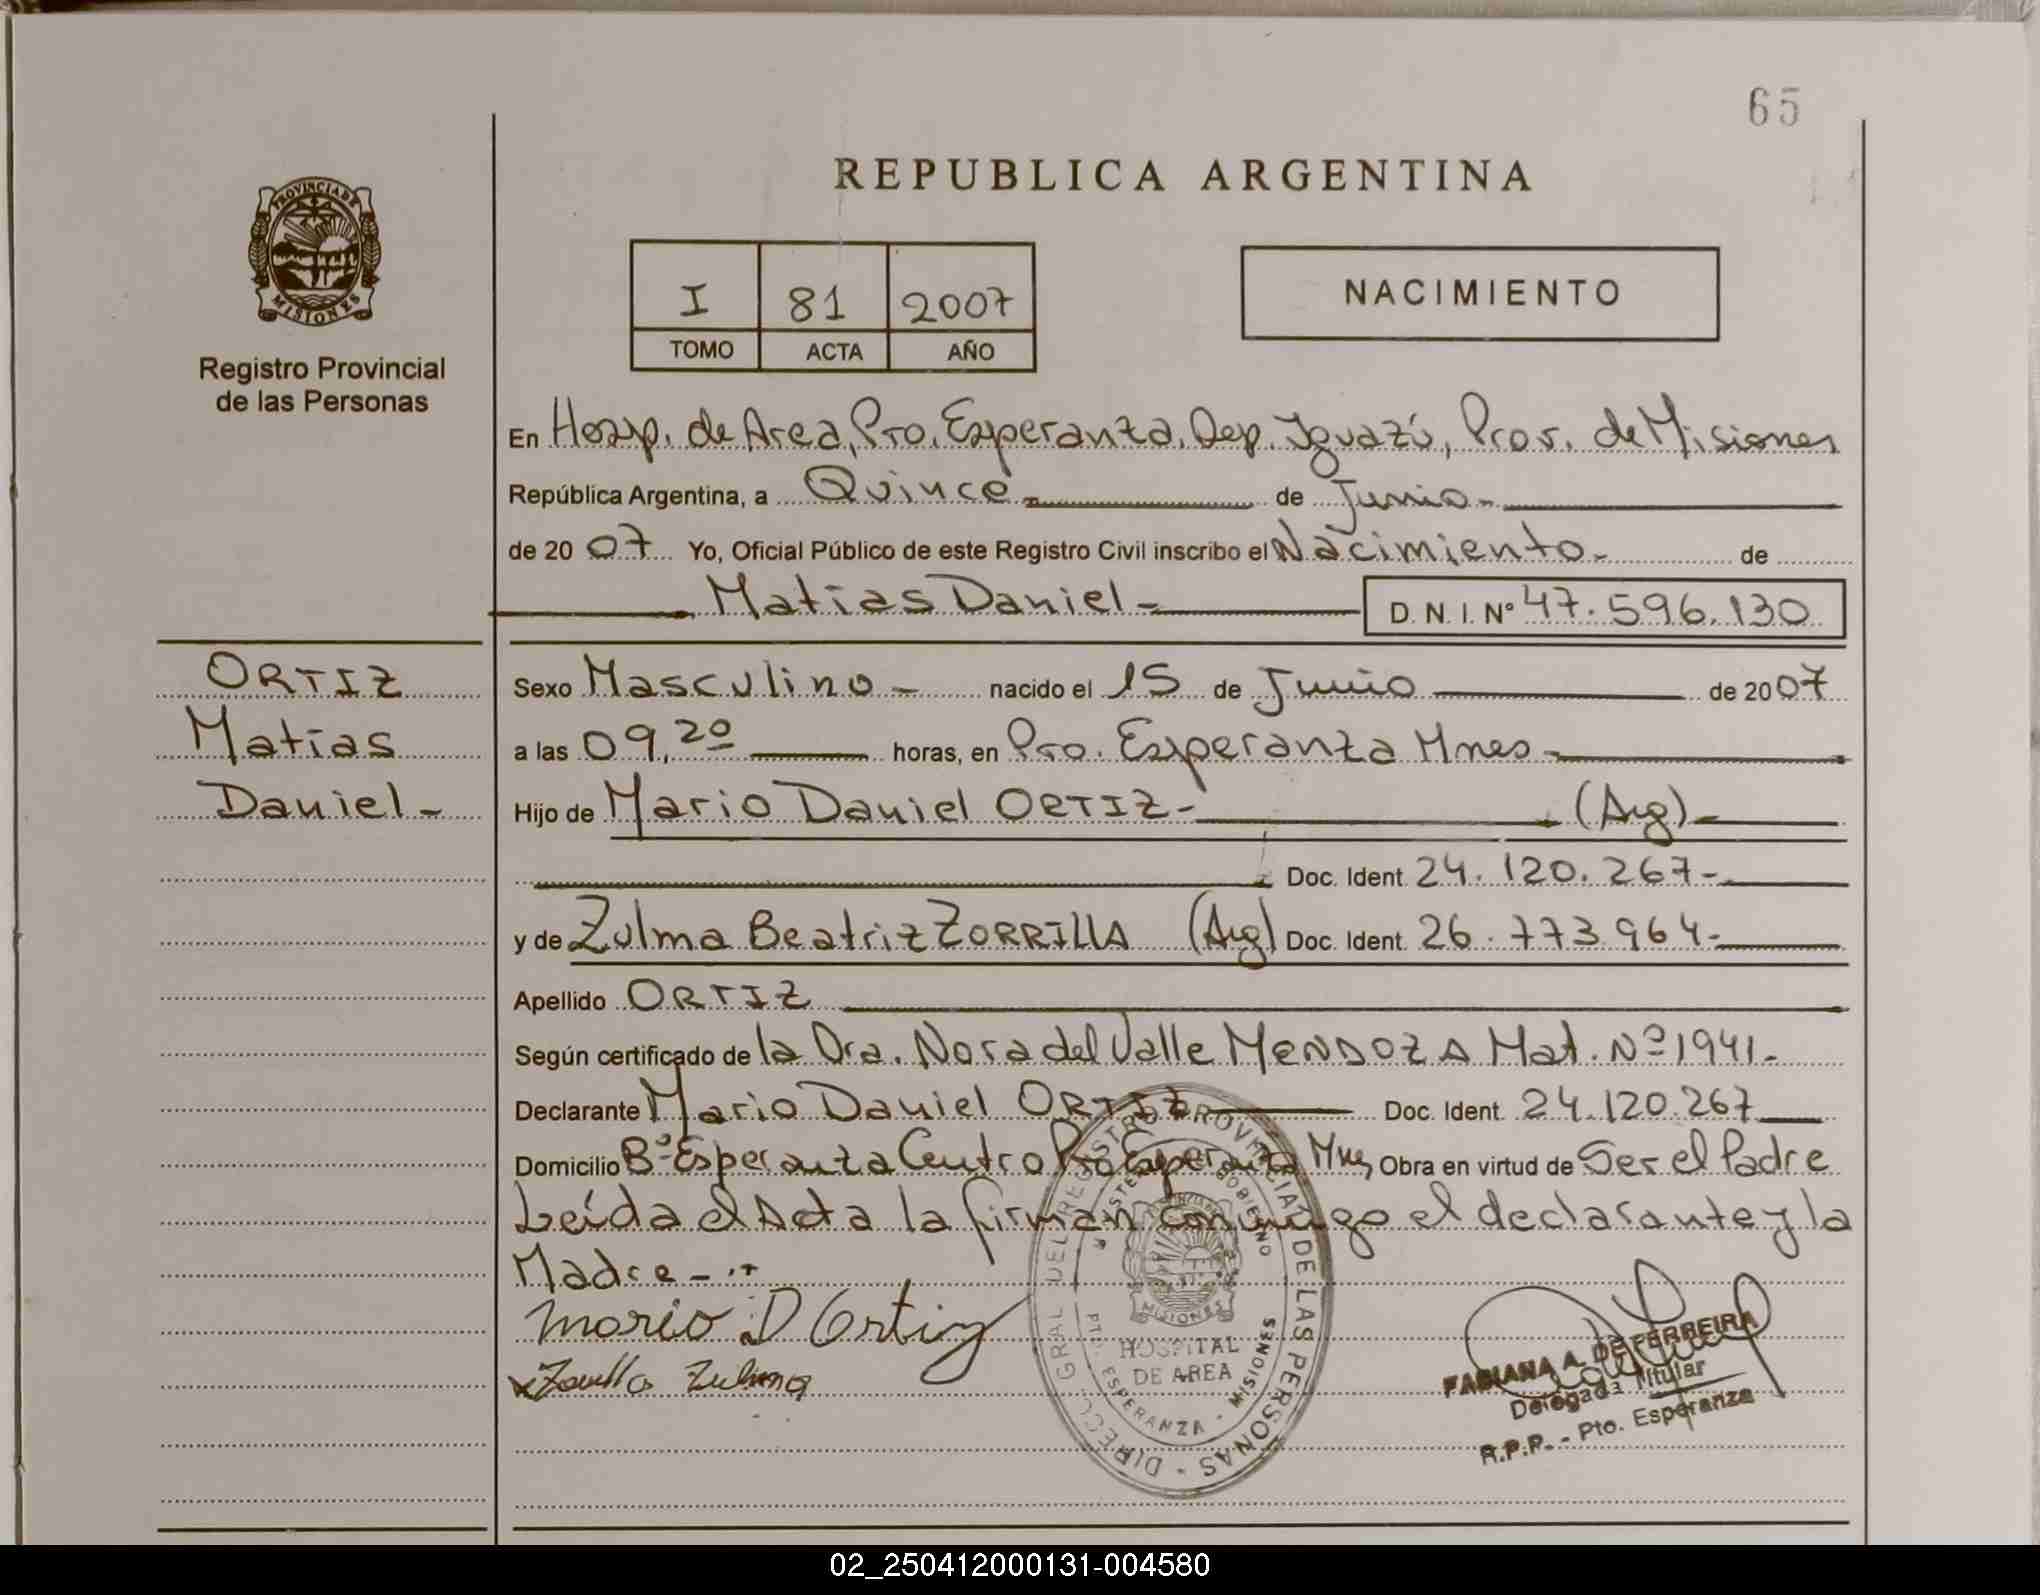 65
REPUBLICA ARGENTINA
PROVINCIA DE
MISIONES
Registro Provincial
de las Personas
I 81 2007
TOMO ACTA AÑO
NACIMIENTO
En Hosp. de Area, Pto. Esperanza, Dep. Iguazú, Prov. de Misiones
República Argentina, a Quince- de Junio-
de 2007 Yo, Oficial Público de este Registro Civil inscribo el Nacimiento- de
Matias Daniel- D. N. I. Nº 47.596.130
ORTIZ
Matias
Daniel-
Sexo Masculino- nacido el 15 de Junio de 2007
a las 09,20 horas, en Pto. Esperanza Mnes-
Hijo de Mario Daniel ORTIZ- (Arg)-
Doc. Ident. 24.120.267-
y de Zulma Beatriz ZORRILLA (Arg) Doc. Ident. 26.773.964-
Apellido ORTIZ
Según certificado de la Dra. Nora del Valle MENDOZA Mat. Nº 1941-
Declarante Mario Daniel ORTIZ Doc. Ident. 24.120.267
Domicilio Bº Esperanza Centro Pto Esperanza Mnes, Obra en virtud de Ser el Padre
Leída el Acta la firman conmigo el declarante y la
Madre-
Mario D Ortiz
Zorrilla Zulma
DIRECC. GRAL DEL REGISTRO PROVINCIAL DE LAS PERSONAS
MINISTERIO GOBIERNO
MISIONES
HOSPITAL
DE AREA
PTO. ESPERANZA - MISIONES
FABIANA A. DE FERREIRA
Delegada Titular
R.P.P. - Pto. Esperanza
02_250412000131-004580